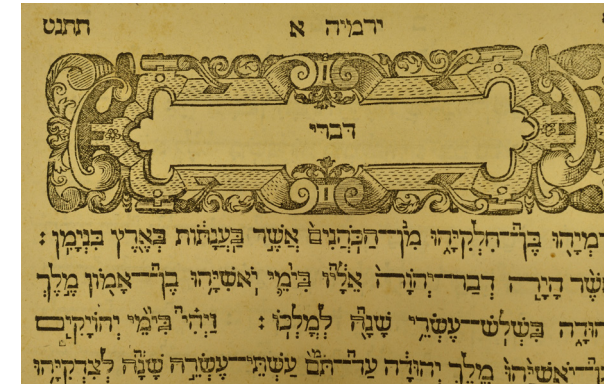 ירמיה א תתנט
דברי
רמיהו בֶּן־חִלְקִיָּהוּ מִן־הַכֹּהֲנִים אֲשֶׁר בַּעֲנָתוֹת בְּאֶרֶץ בִּנְיָמִן׃
אֲשֶׁר הָיָה דְבַר־יְהוָה אֵלָיו בִּימֵי יֹאשִׁיָּהוּ בֶן־אָמוֹן מֶלֶךְ
הוּדָה בִּשְׁלֹשׁ־עֶשְׂרֵה שָׁנָה לְמָלְכוֹ׃ וַיְהִי בִּימֵי יְהוֹיָקִים
בֶּן־יֹאשִׁיָּהוּ מֶלֶךְ יְהוּדָה עַד־תֹּם עַשְׁתֵּי־עֶשְׂרֵה שָׁנָה לְצִדְקִיָּהוּ